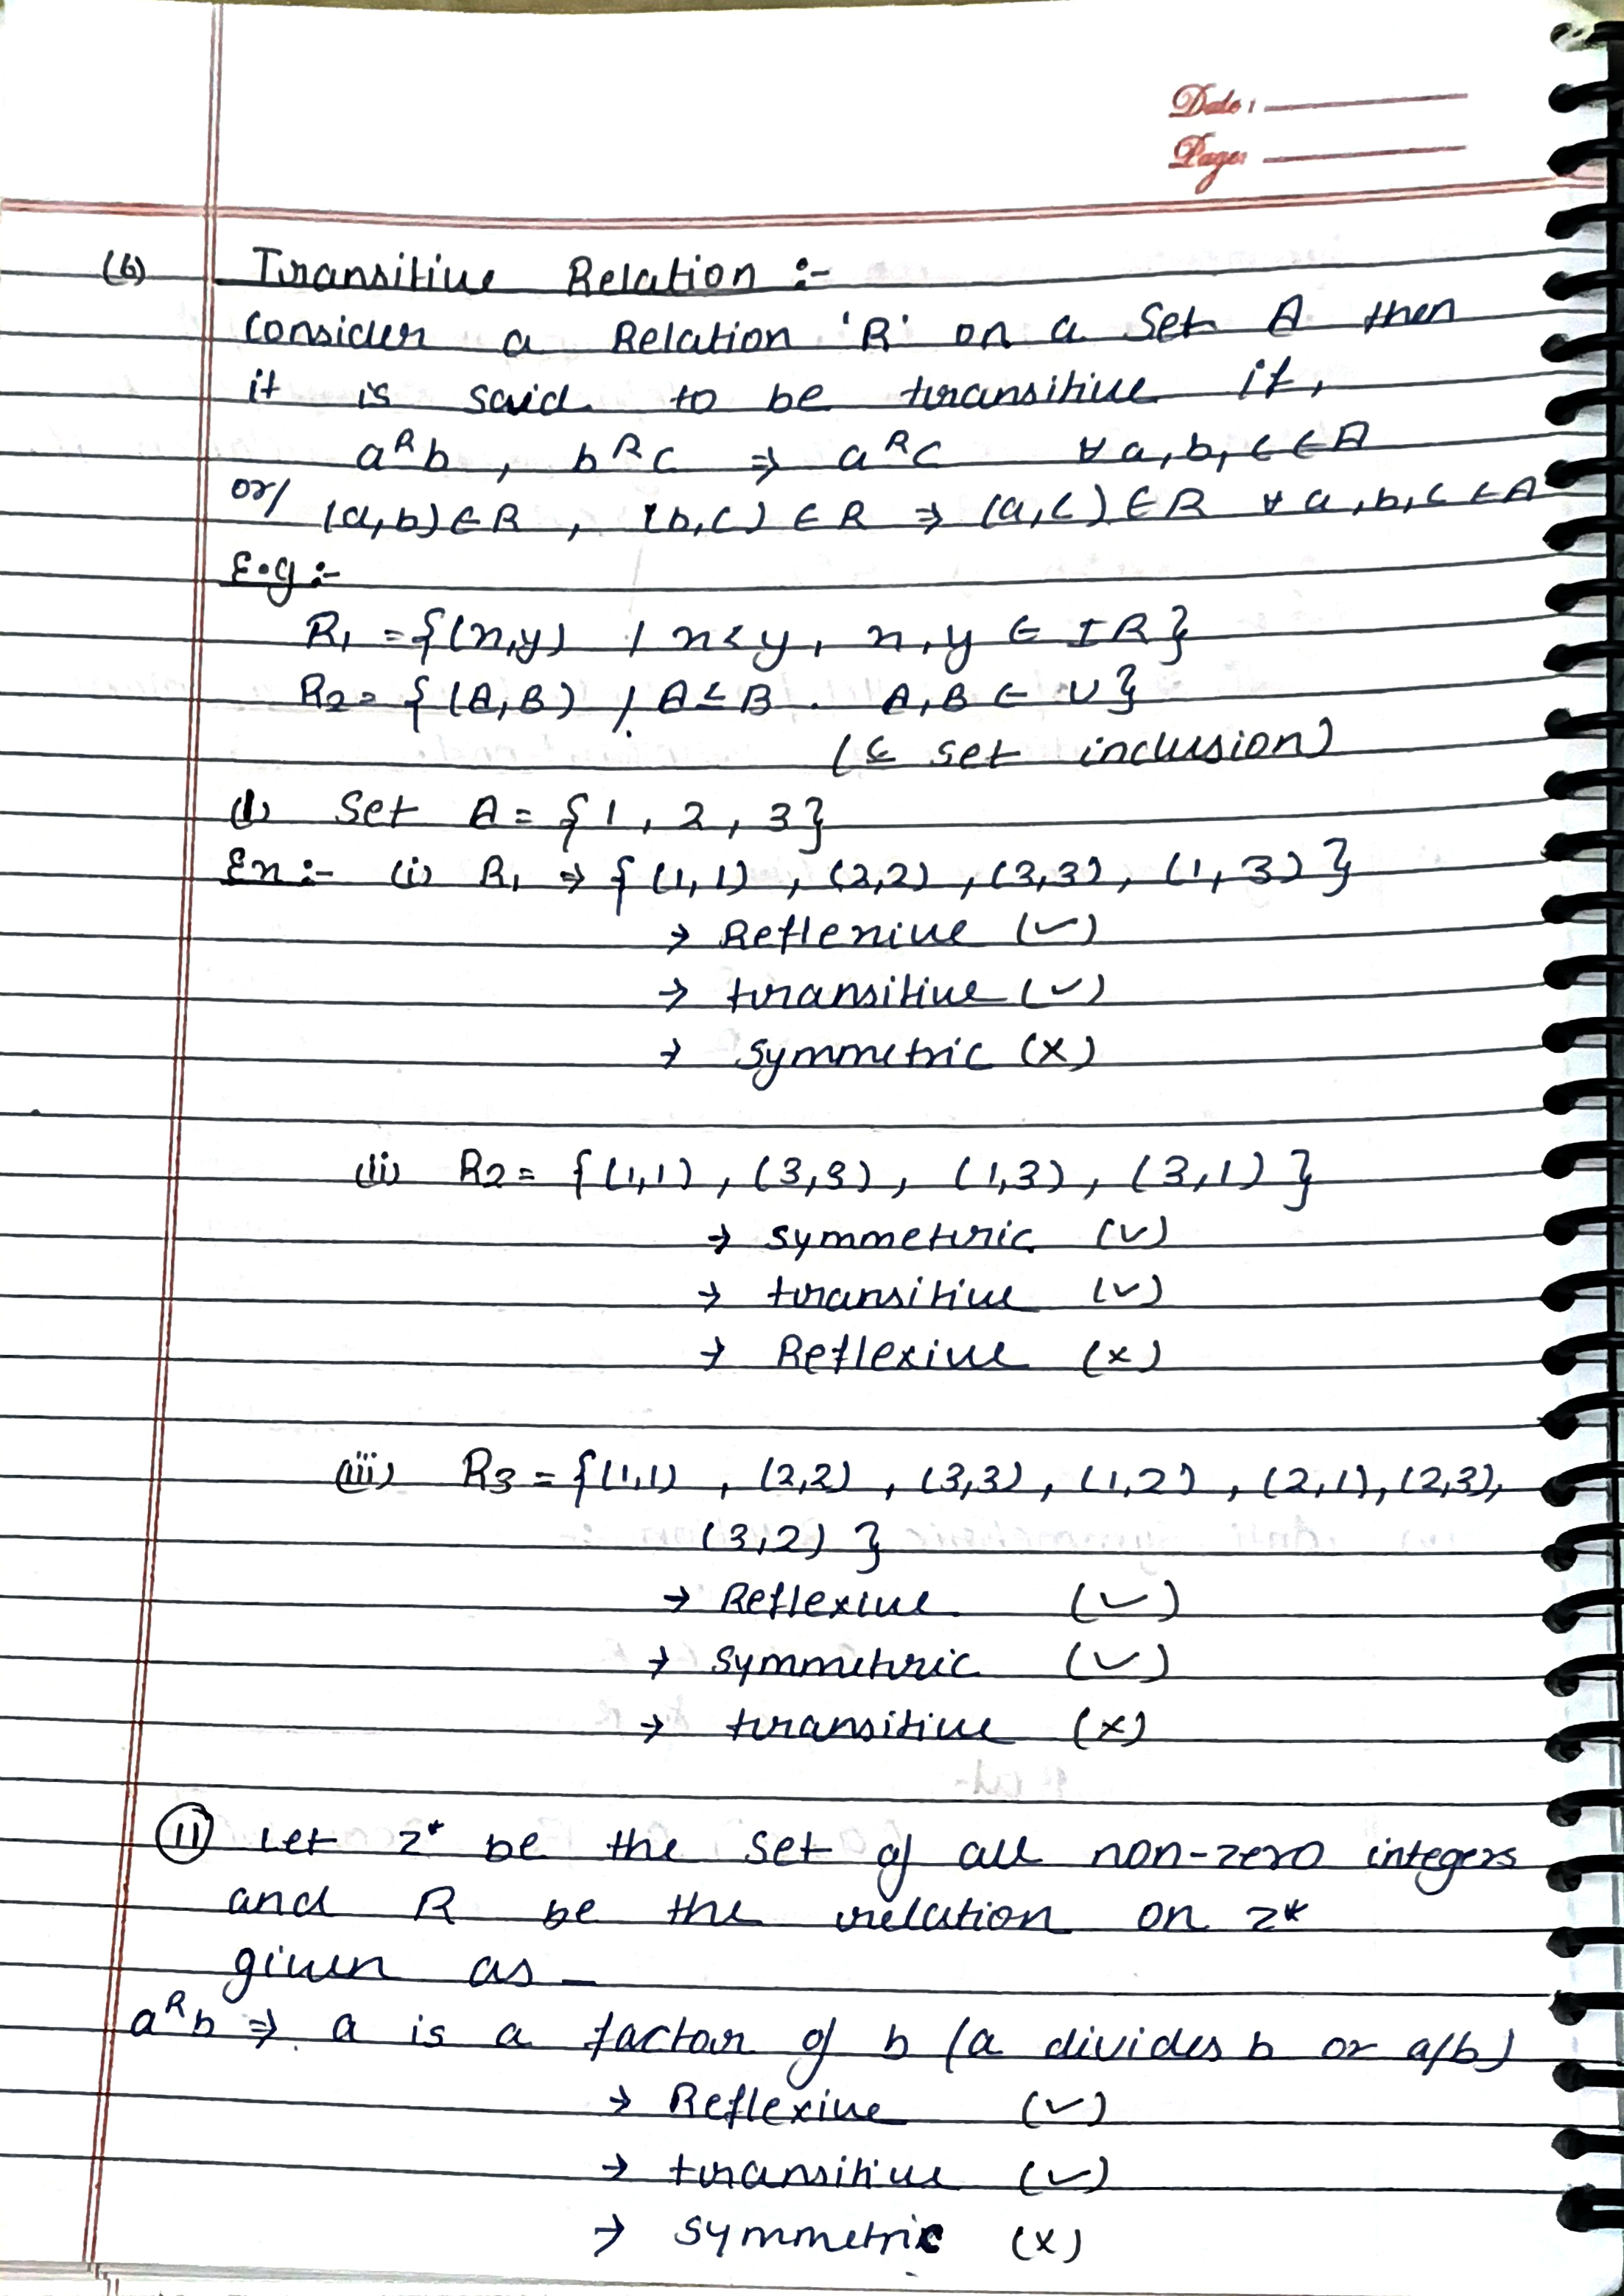 Date:
Page:
(6) Transitive Relation :-
Consider a Relation 'R' on a Set A then
it is said to be transitive if,
aᴿb , bᴿc ⇒ aᴿc ∀ a, b, c ∈ A
or/ (a,b) ∈ R , (b,c) ∈ R ⇒ (a,c) ∈ R ∀ a, b, c ∈ A
E.g :-
R₁ = {(x,y) / x<y, x,y ∈ IR}
R₂ = {(A,B) / A⊆B . A,B ∈ U}
(⊆ set inclusion)
(I) Set A = {1, 2, 3}
Ex :- (i) R₁ ⇒ {(1,1) , (2,2) , (3,3), (1,3)}
→ Reflexive (✓)
→ transitive (✓)
→ Symmetric (×)
(ii) R₂ = {(1,1) , (3,3), (1,3), (3,1)}
→ symmetric (✓)
→ transitive (✓)
→ Reflexive (×)
(iii) R₃ = {(1,1) , (2,2) , (3,3), (1,2) , (2,1), (2,3),
(3,2)}
→ Reflexive (✓)
→ Symmetric (✓)
→ transitive (×)
(II) Let z* be the set of all non-zero integers
and R be the relation on z*
given as —
aᴿb ⇒ a is a factor of b (a divides b or a/b)
→ Reflexive (✓)
→ transitive (✓)
→ Symmetric (×)